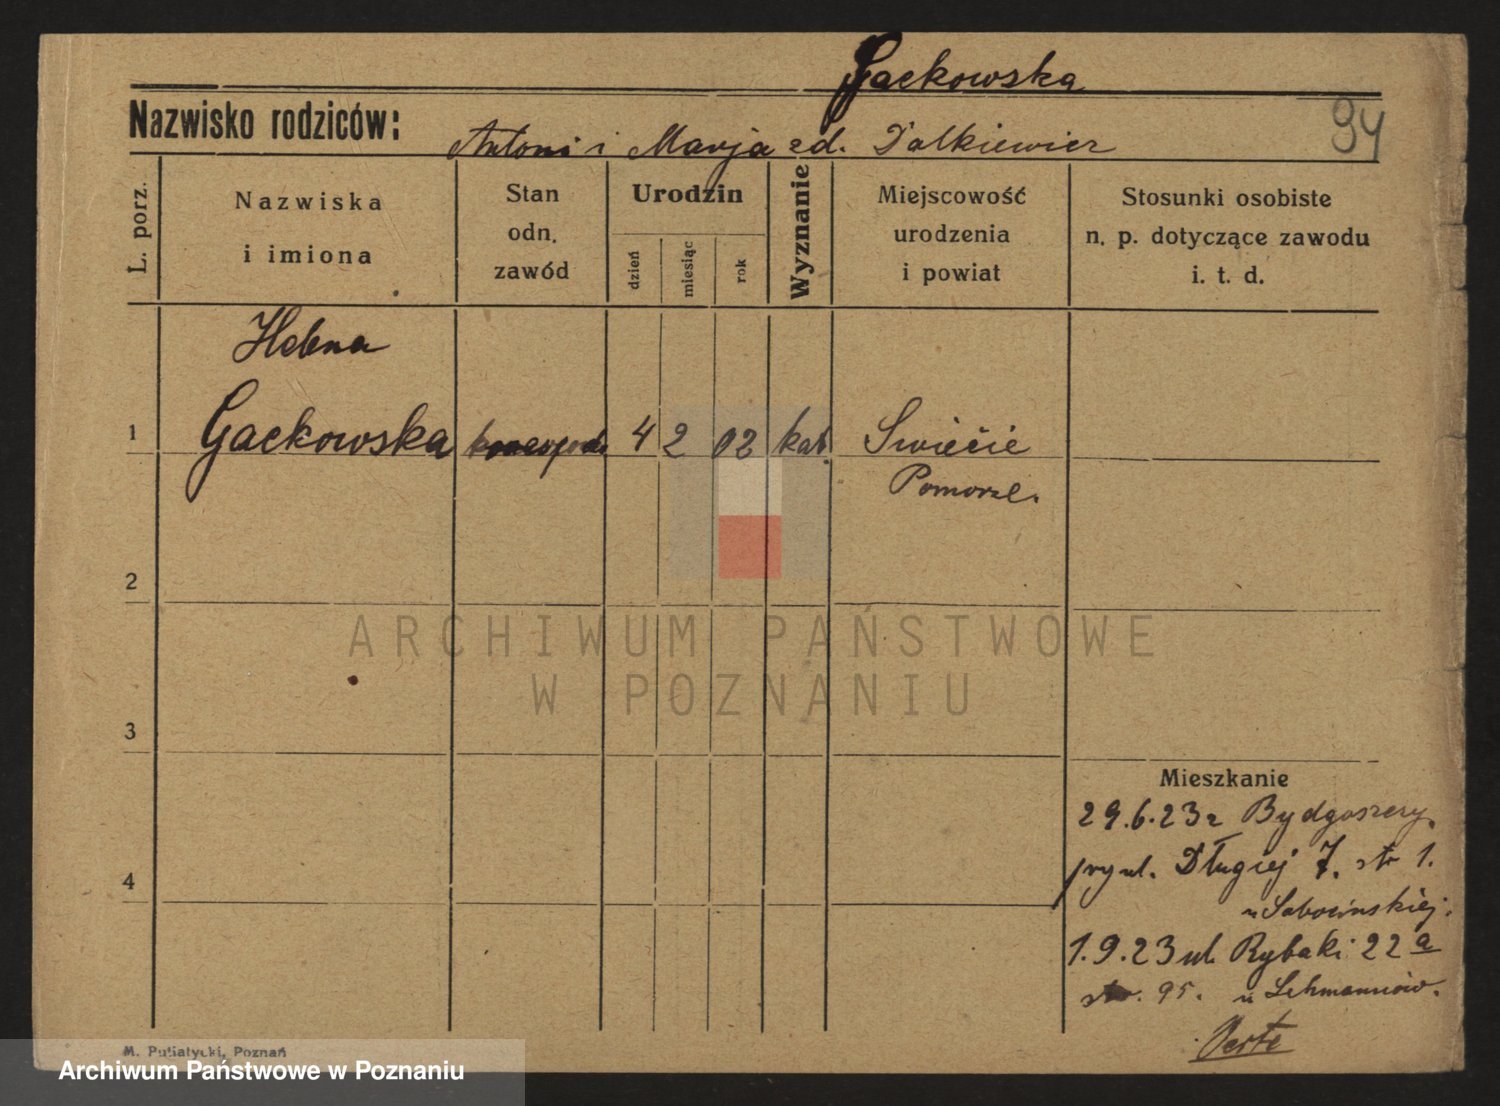 Gackowska
Nazwisko rodziców:
Antoni i Marja zd. Falkiewicz
94
L. porz.
Nazwiska
i imiona
Stan
odn.
zawód
Urodzin
dzień
miesiąc
rok
Wyznanie
Miejscowość
urodzenia
i powiat
Stosunki osobiste
n. p. dotyczące zawodu
i. t. d.
Helena
1 Gackowska 4 2 02 kat. Swiecie
Pomorze.
2
ARCHIWUM PAŃSTWOWE
W POZNANIU
3
Mieszkanie
29.6.23 z Bydgoszczy.
4
przy ul. Długiej 7. str 1.
1.9.23 ul. Rybaki 22a
str. 95. u Lehmannów.
Verte
M. Putiatycki, Poznań
Archiwum Państwowe w Poznaniu